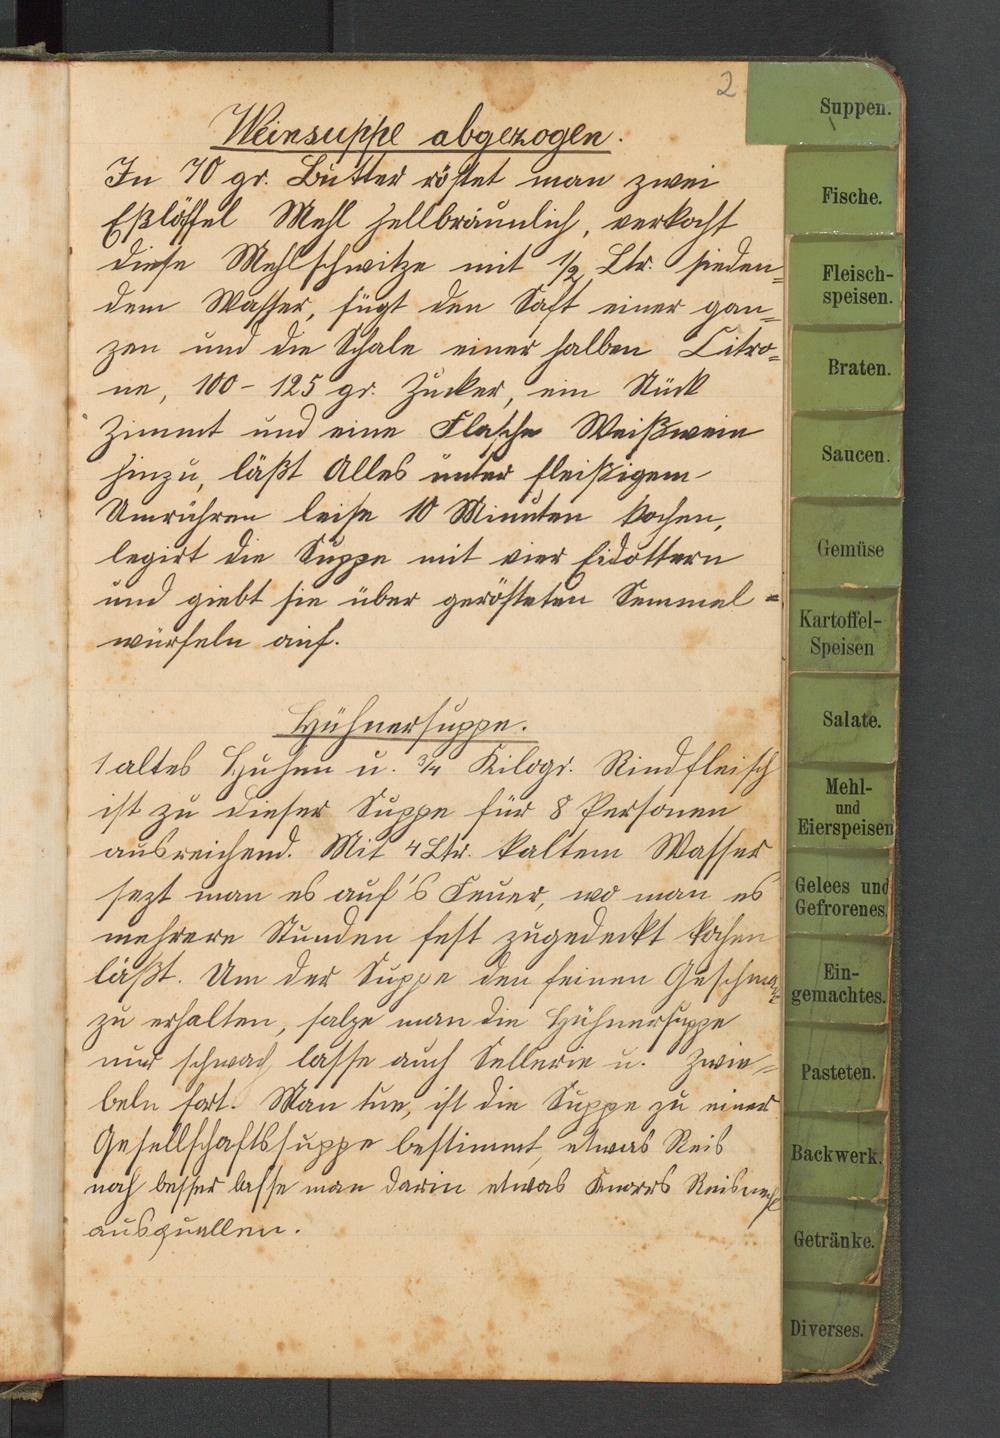 2
Weinsuppe abgezogen.
In 70 gr. Butter röstet man zwei
Eßlöffel Mehl hellbräunlich, verkocht
diese Mehlschwitze mit 1/2 Ltr. sieden=
dem Wasser, fügt den Saft einer gan=
zen und die Schale einer halben Citro=
ne, 100-125 gr. Zucker, ein Stück
Zimmt und eine Flasche Weißwein
hinzu, läßt Alles unter fleißigem
Umrühren leise 10 Minuten kochen,
legirt die Suppe mit vier Eidottern
und giebt sie über gerösteten Semmel=
würfeln auf.
Hühnersuppe.
1 altes Huhen u. 3/4 Kilogr. Rindfleisch
ist zu dieser Suppe für 8 Personen
ausreichend. Mit 4 Ltr. kaltem Wasser
sezt man es auf's Feuer, wo man es
mehrere Stunden fest zugedeckt kochen
läßt. Um der Suppe den feinen Geschmack
zu erhalten, salze man die Hühnersuppe
nur schwach lasse auch Sellerie u. Zwie=
beln fort. Man tue, ist die Suppe zu einer
Gesellschaftssuppe bestimmt, etwas Reis
noch besser lasse man darin etwas Knorrs Reismehl
ausquellen.
Suppen.
Fische.
Fleisch-
speisen.
Braten.
Saucen.
Gemüse
Kartoffel-
Speisen
Salate.
Mehl-
und
Eierspeisen
Gelees und
Gefrorenes.
Ein-
gemachtes.
Pasteten.
Backwerk.
Getränke.
Diverses.